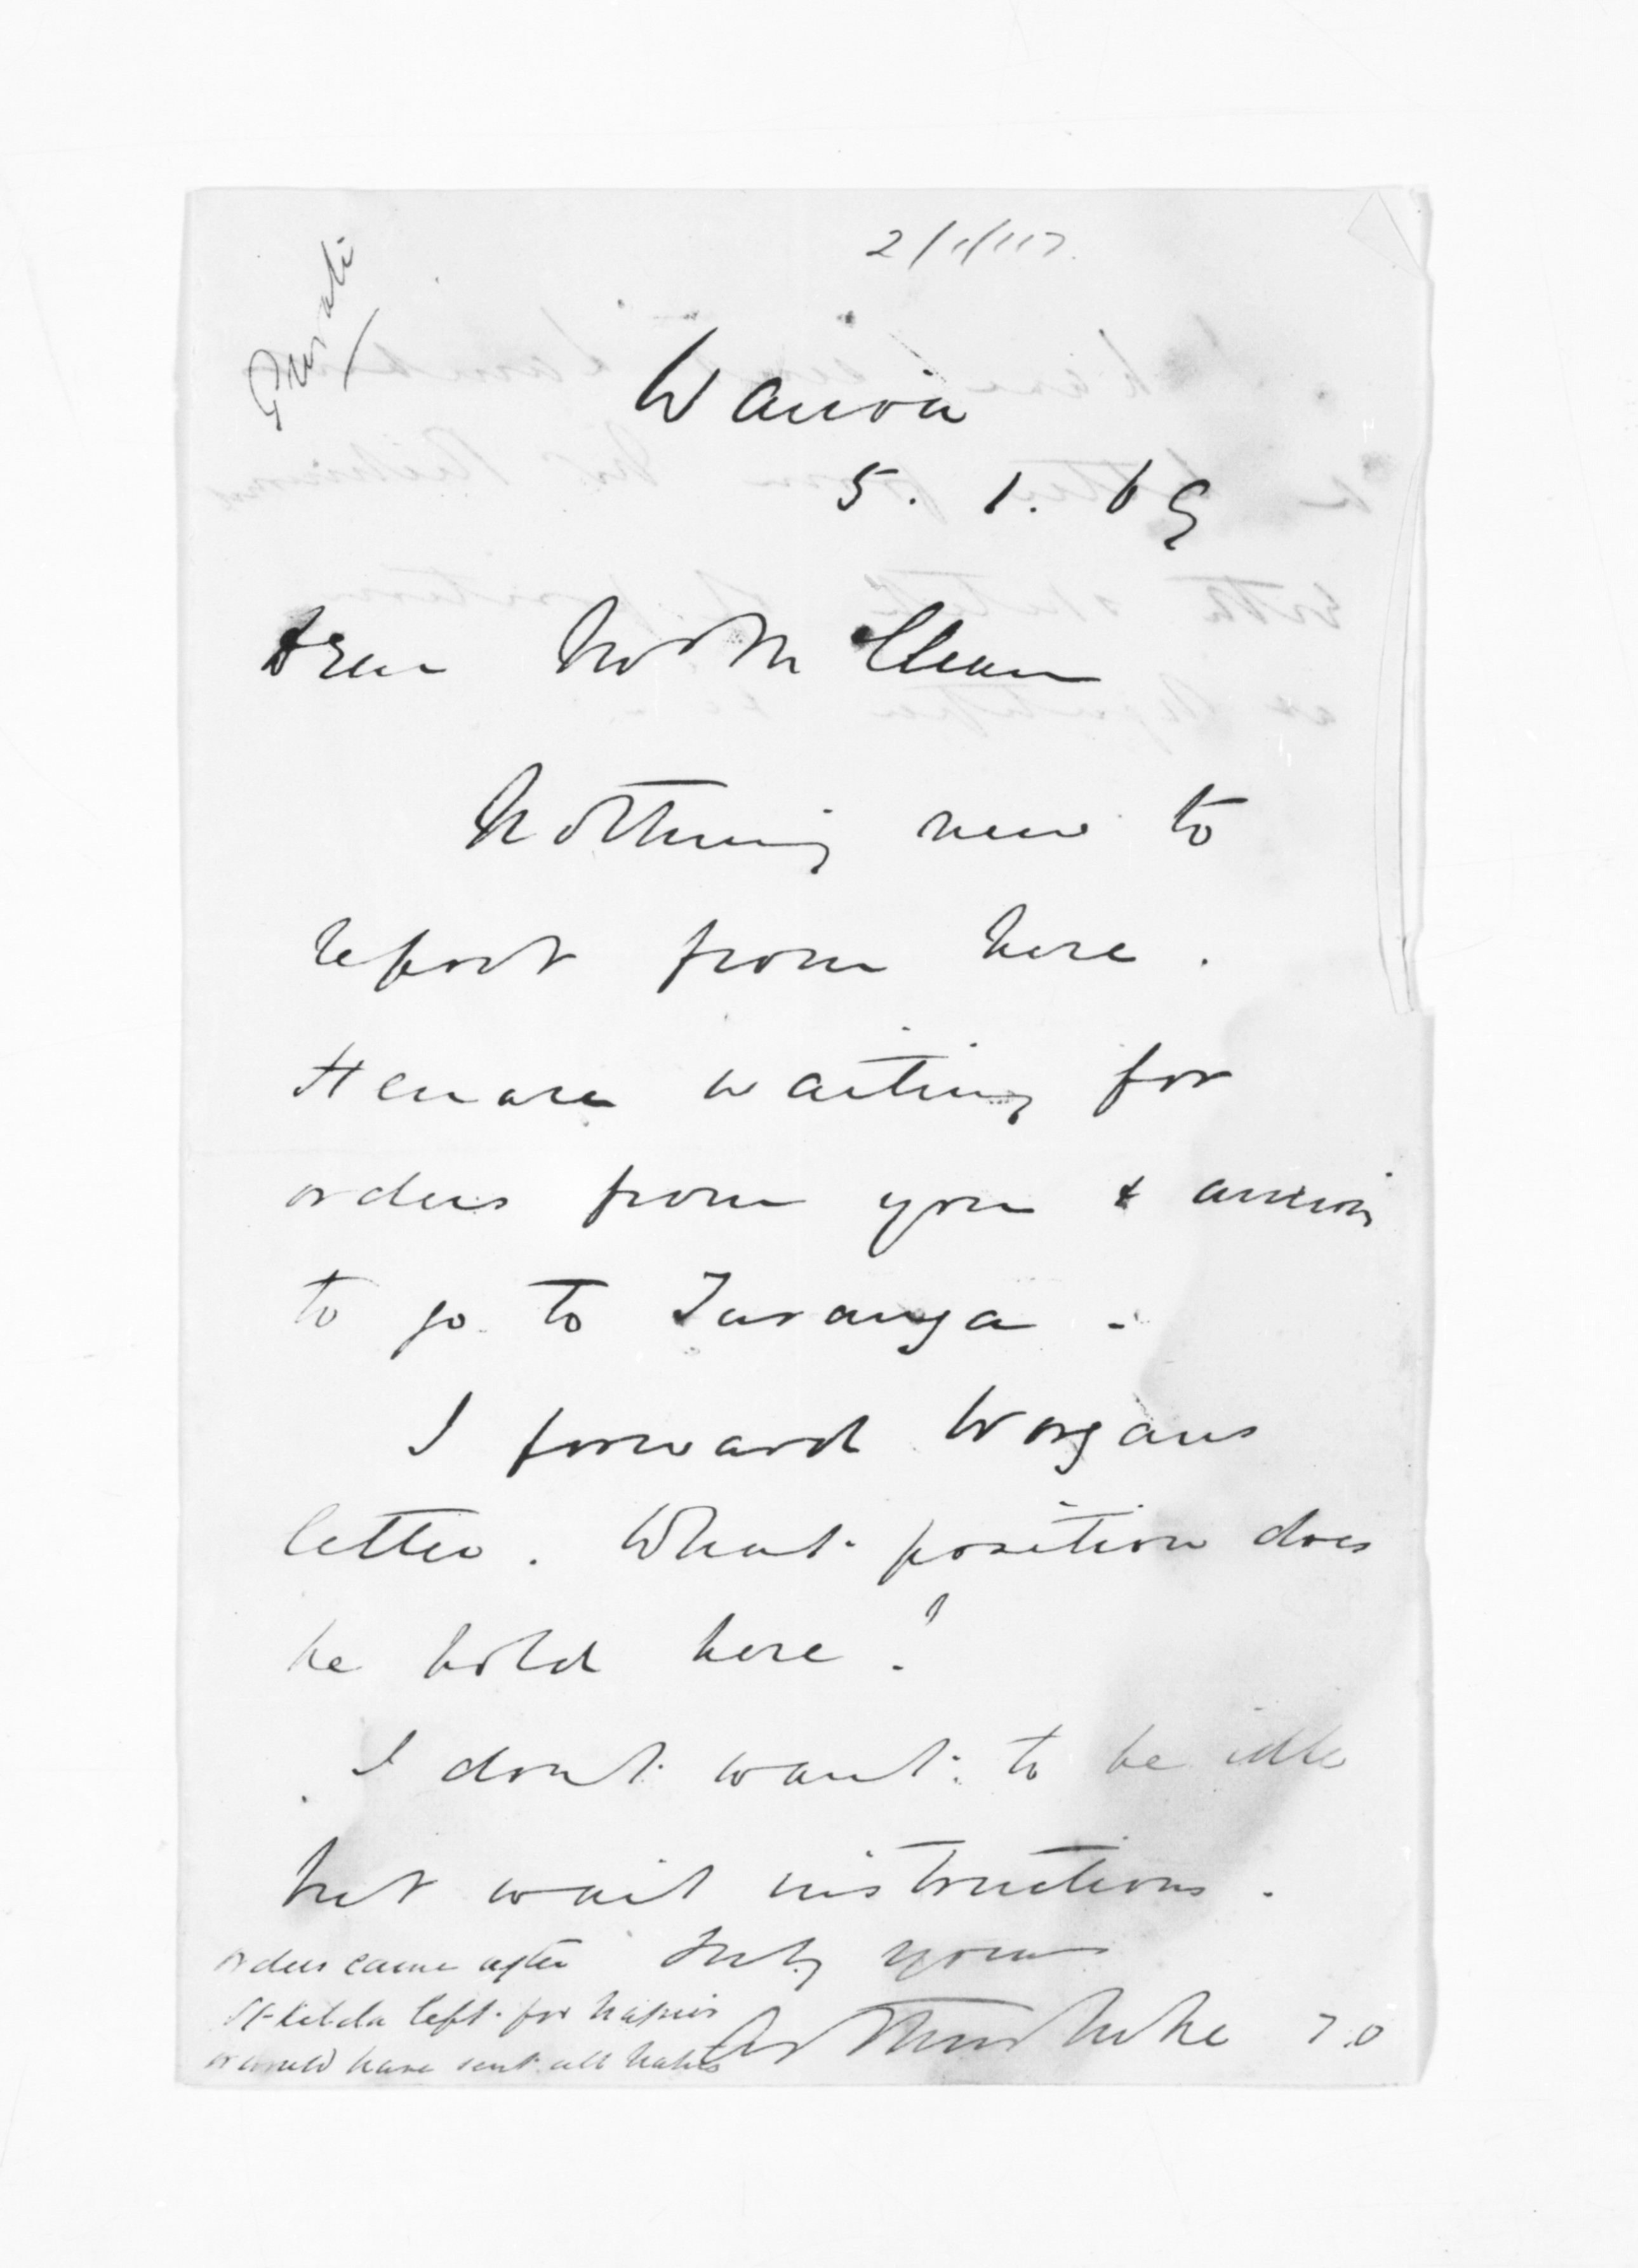 Private
Wairoa
5. 1. 69
Dear Mr McClean
Nothing new to
report from here.
Henare waiting for
orders from you & anxious
to go to Turanga.
I forward Worgans
letter. What position does
he hold here?
I dont want to be idle
but wait instructions.
orders came after
St Kilda left for Napier
or would have sent all
Truly yours